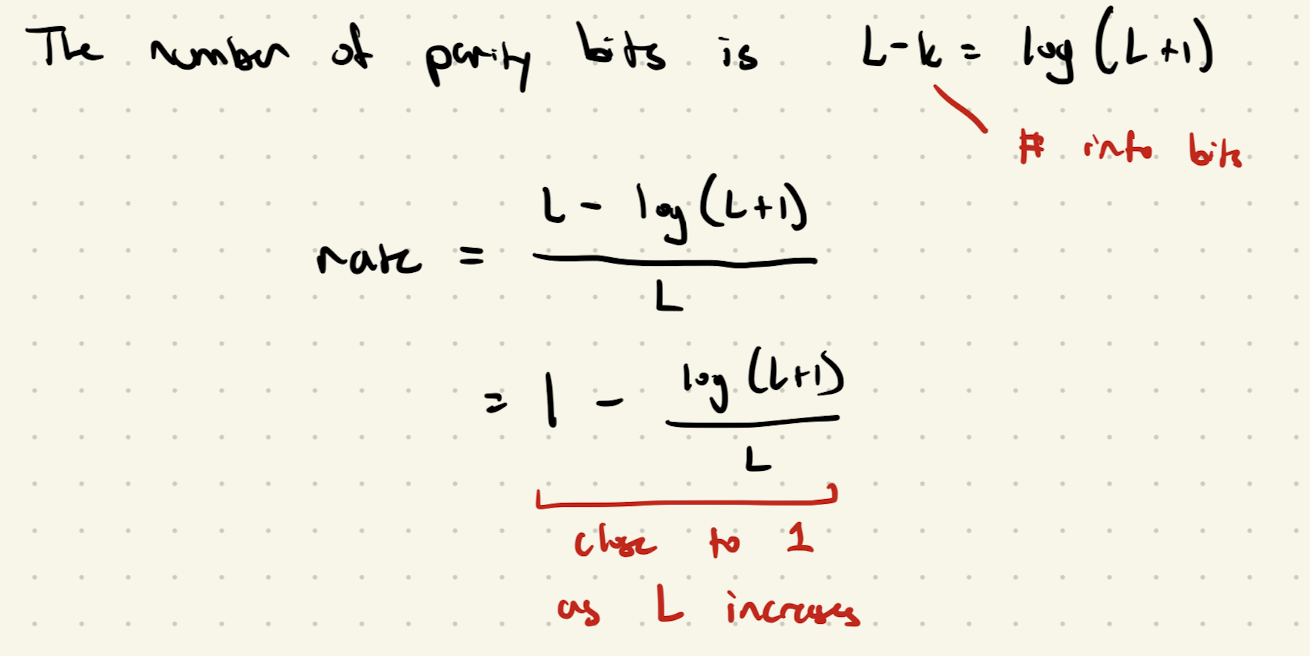 The number of parity bits is L-k = log (L+1)
# info bits
rate = L - log (L+1) / L
= 1 - log (L+1) / L
close to 1
as L increases